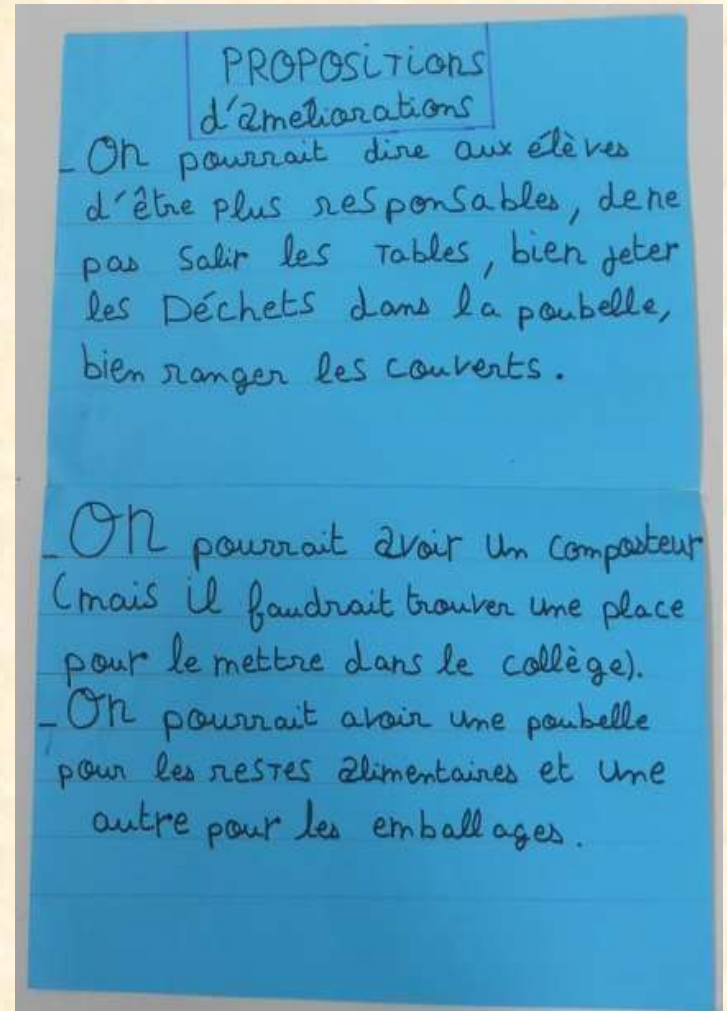 PROPOSITIONS
d'améliorations
- On pourrait dire aux élèves
d'être plus responsables, de ne
pas salir les Tables, bien jeter
les Déchets dans la poubelle,
bien ranger les couverts.
- On pourrait avoir un composteur
(mais il faudrait trouver une place
pour le mettre dans le collège).
- On pourrait avoir une poubelle
pour les restes alimentaires et une
autre pour les emballages.